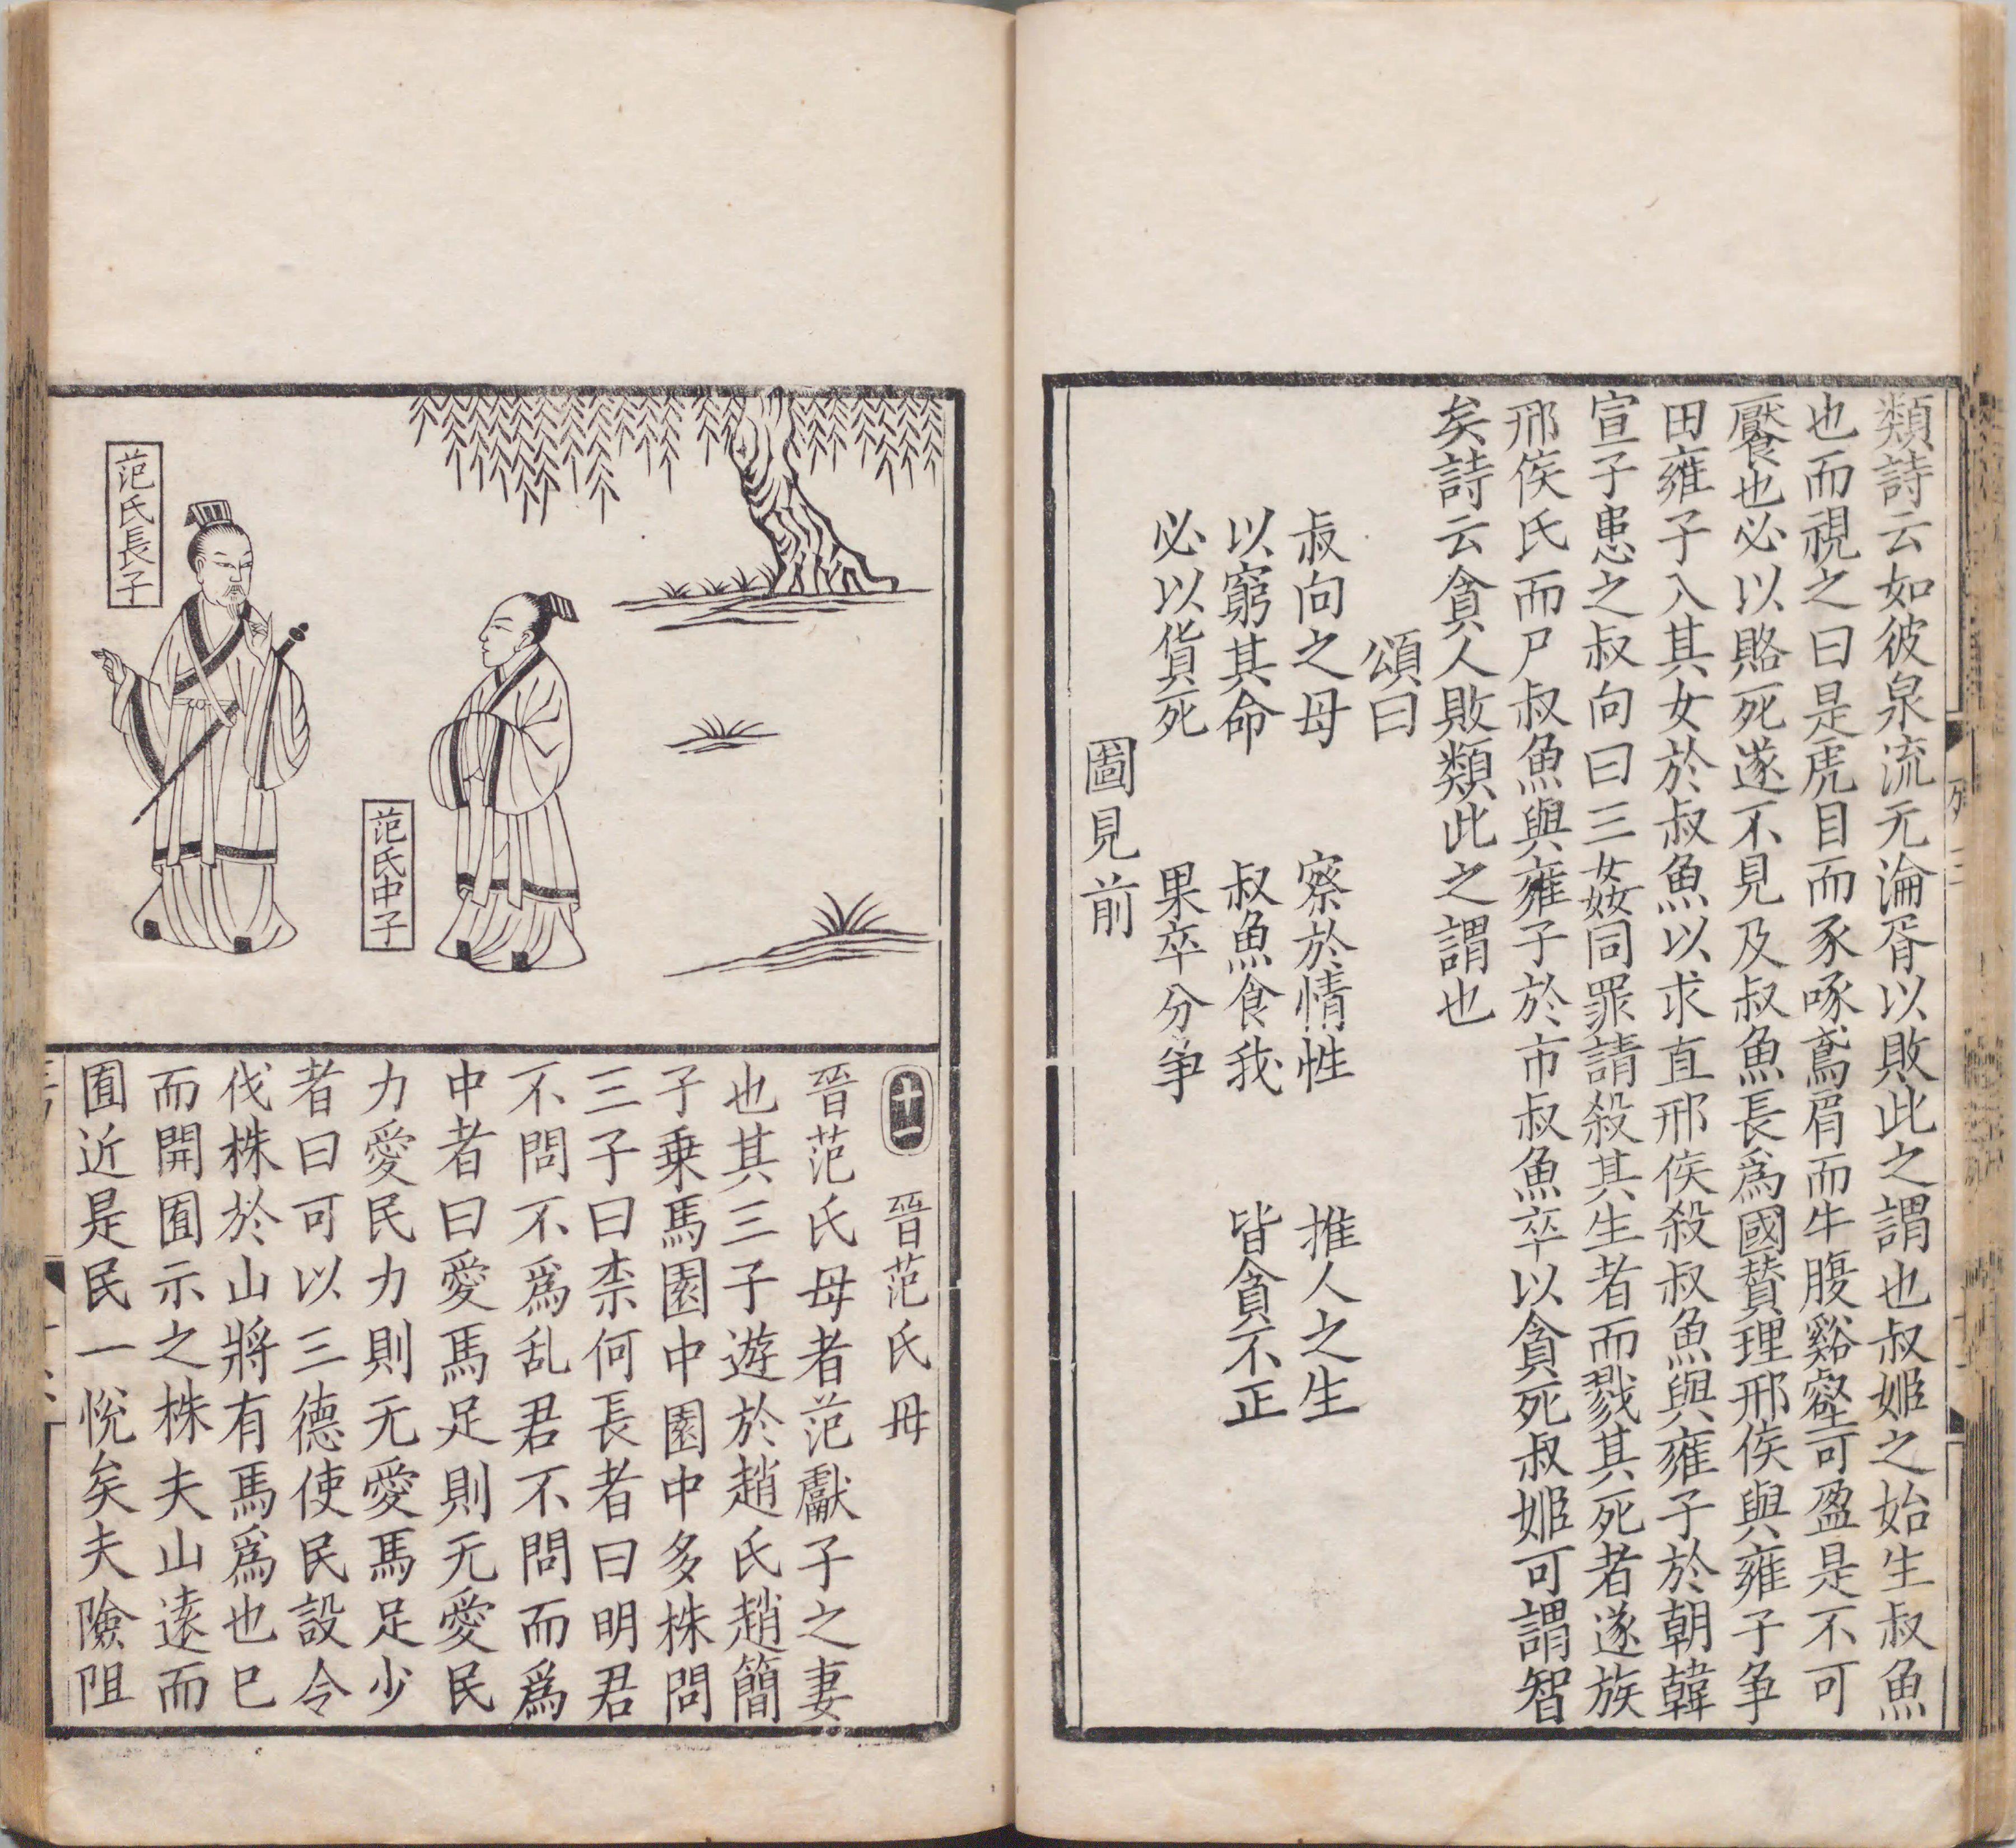 類詩云如彼泉流无淪胥以敗此之謂也叔姬之始生叔魚
也而視之曰是虎目而豕啄鳶肩而牛腹谿壑可盈是不可
饜也必以賂死遂不見及叔魚長爲國贊理邢侯與雍子争
田雍子入其女於叔魚以求直邢侯殺叔魚與雍子於朝韓
宣子患之叔向曰三姦同罪請殺其生者而戮其死者遂族
邢侯氏而尸叔魚與雍子於市叔魚卒以貪死叔姬可謂智
矣詩云貪人敗類此之謂也
頌曰
叔向之母 察於情性 推人之生
以窮其命 叔魚食我 皆貪不正
必以貨死 果卒分争
圖見前
范氏長子
范氏中子
十一 晉范氏母
晉范氏母者范獻子之妻
也其三子遊於趙氏趙簡
子乗馬園中園中多株問
三子曰柰何長者曰明君
不問不爲乱君不問而爲
中者曰愛馬足則无愛民
力愛民力則无愛馬足少
者曰可以三德使民設令
伐株於山將有馬爲也已
而開囿示之株夫山逺而
囿近是民一悅矣夫險阻